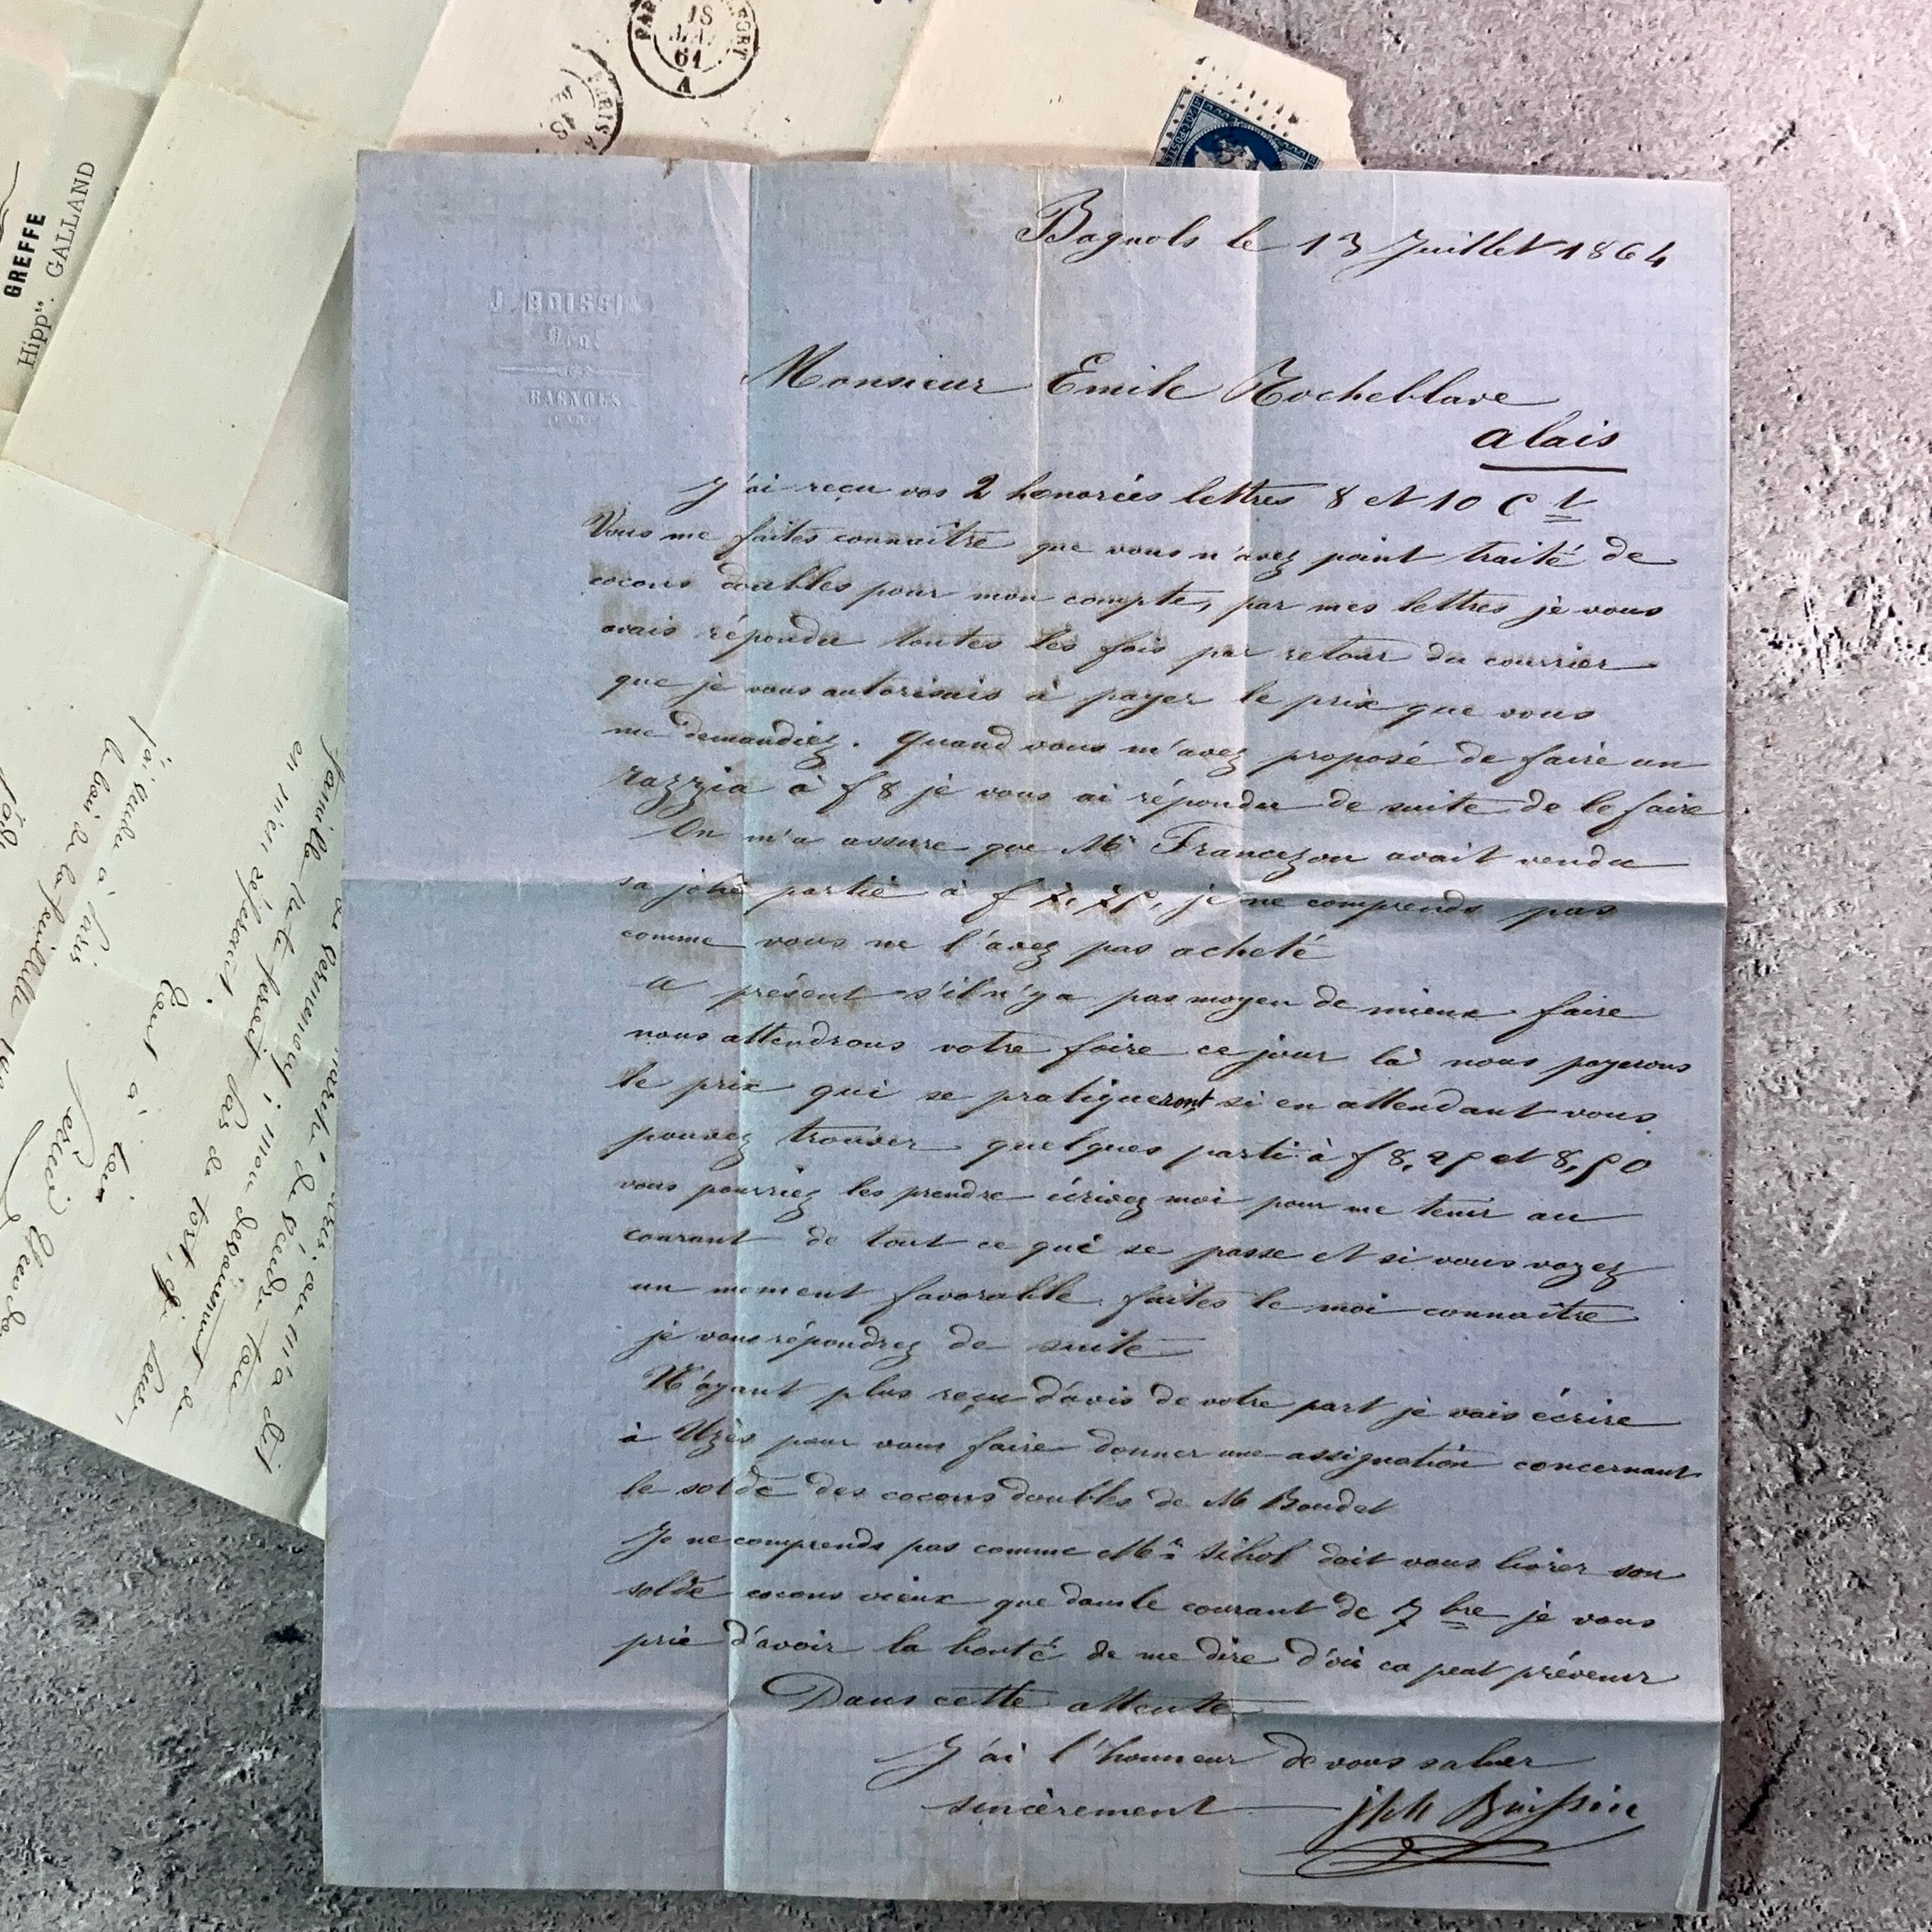 GREFFE
Hippte. GALLAND
18
61
A
J. BOISSIN
BAGNOLS
(GARD)
Bagnols le 13 Juillet 1864
Monsieur Emile Rocheblave
alais
J'ai reçu vos 2 honorées lettres 8 et 10 Ct
Vous me faites connaître que vous n'avez point traité de
cocons doubles pour mon compte, par mes lettres je vous
avais répondu toutes les fois par retour du courrier
que je vous autorisais à payer le prix que vous
me demandiez. quand vous m'avez proposé de faire un
razzia à f 8 je vous ai répondu de suite de le faire
On m'a assure que Mr Francezon avait vendu
sa jolie partie à f 7,75, je ne comprends pas
comme vous ne l'avez pas acheté
A présent s'il n'y a pas moyen de mieux faire
nous attendrons votre foire ce jour là nous payerons
le prix qui se pratiqueront si en attendant vous
pouvez trouver quelques parti à f 8,25 et 8,50
vous pourriez les prendre écrivez moi pour me tenir au
courant de tout ce qui se passe et si vous voyez
un moment favorable faites le moi connaître
je vous répondrez de suite
N'ayant plus reçu d'avis de votre part je vais écrire
à Uzès pour vous faire donner une assignation concernant
le solde des cocons doubles de M Boudet
Je ne comprends pas comme Mr Silhol doit vous livrer son
solde cocons vieux que dans le courant de 7bre je vous
prie d'avoir la bonté de me dire d'où ca peut prévenir
Dans cette attente
J'ai l'honneur de vous saluer
sincèrement jph Boissin